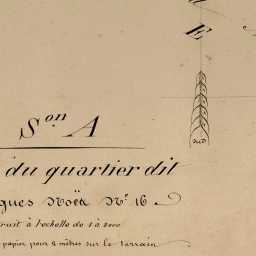 E
SUD
S.on A
du quartier dit
gues Noët N.o 16
ruit à l'echelle de 1 à 2000
papier pour 2 mètres sur le terrain